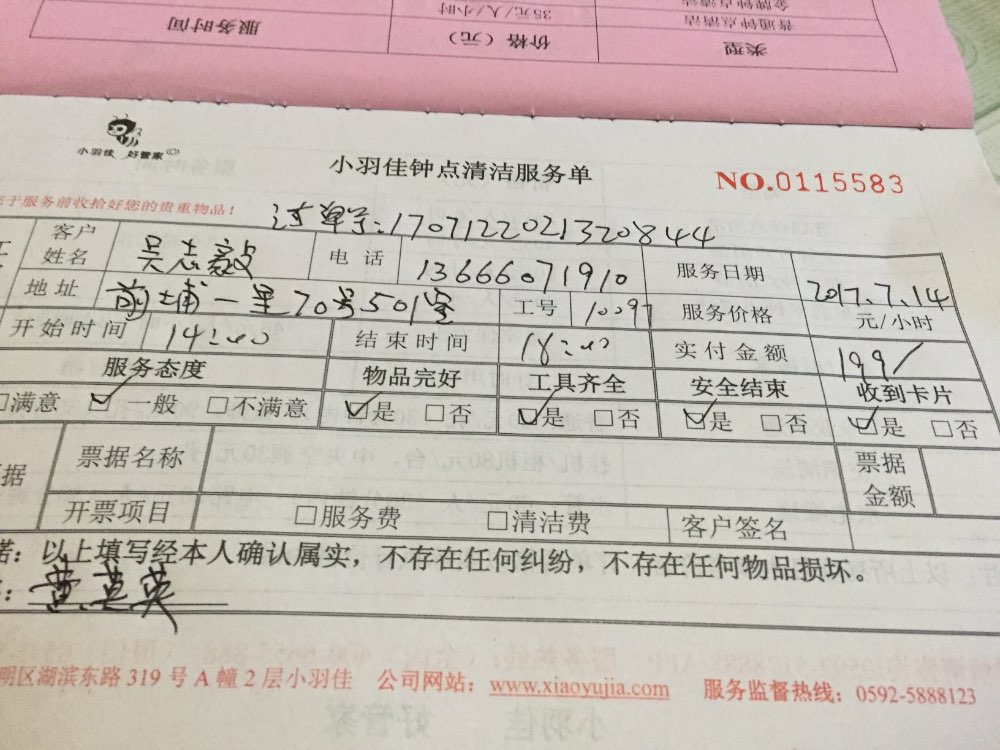 金牌钟点清洁
普通钟点清洁 35元/人/小时
类型 价格（元） 服务时间
小羽佳 好管家
小羽佳钟点清洁服务单 NO.0115583
于服务前收拾好您的贵重物品！
过单号:170712202132084 4
客户姓名 吴志毅 电话 13666071910 服务日期 2017.7.14
地址 前埔一里70号501室 工号 10097 服务价格 元/小时
开始时间 14:00 结束时间 18:00 实付金额 199/
服务态度 物品完好 工具齐全 安全结束 收到卡片
□满意 ☑一般 □不满意 ☑是 □否 ☑是 □否 ☑是 □否 ☑是 □否
据 票据名称 票据金额
开票项目 □服务费 □清洁费 客户签名
诺：以上填写经本人确认属实，不存在任何纠纷，不存在任何物品损坏。
：黄英英
明区湖滨东路 319 号 A 幢 2 层小羽佳 公司网站：www.xiaoyujia.com 服务监督热线：0592-5888123